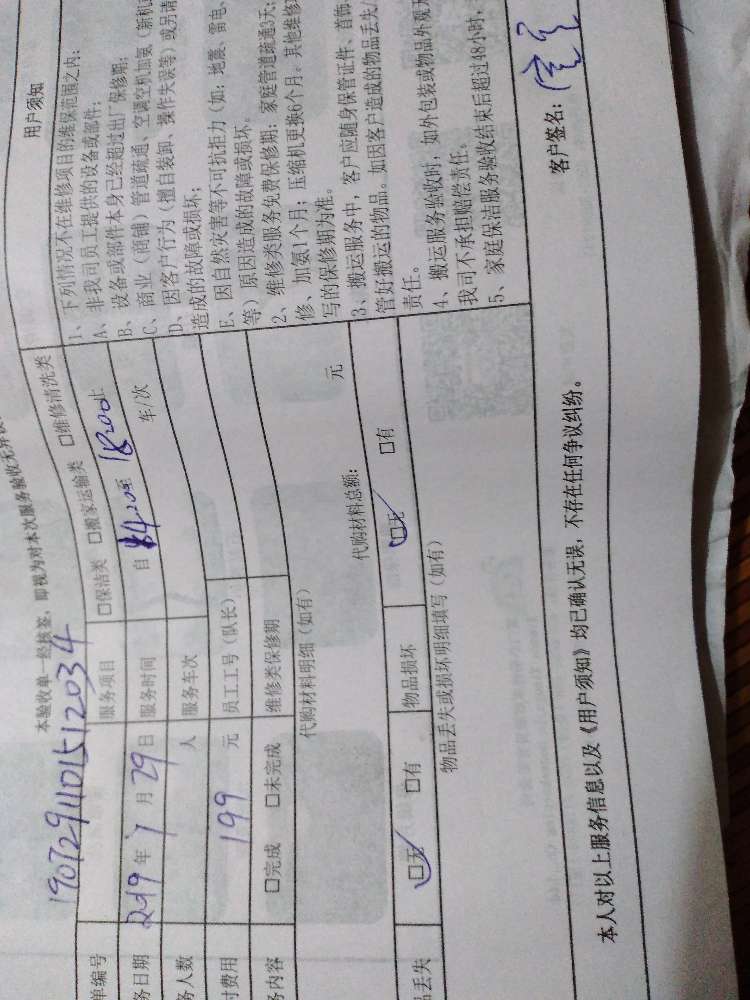 本验收单一经核签，即视为对本次服务验收无异议
单编号 1907291101512034
服务项目 □保洁类 □搬家运输类 □维修清洗类
务日期 2019年 月29日 服务时间 自 14:20至18:20止
务人数 人 服务车次 车/次
付费用 199 元 员工工号（队长）
务内容 □完成 □未完成 维修类保修期
代购材料明细（如有）
代购材料总额： 元
品丢失 □无 □有 物品损坏 □无 □有
物品丢失或损坏明细填写（如有）
用户须知
1、下列情况不在维修项目的维保范围之内：
A、非我司员工提供的设备或部件；
B、设备或部件本身已经超过出厂保修期；
C、商业（商铺）管道疏通、空调空机加氨（新机
D、因客户行为（擅自装卸、操作失误等）或另请
造成的故障或损坏；
E、因自然灾害等不可抗拒力（如：地震、雷电、
等）原因造成的故障或损坏。
2、维修类服务免费保修期：家庭管道疏通3天；
修、加氨1个月；压缩机更换6个月。其他维修
写的保修期为准。
3、搬运服务中，客户应随身保管证件、首饰
管好搬运的物品。如因客户造成的物品丢失/
责任。
4、搬运服务验收时，如外包装或物品外观无
我司不承担赔偿责任。
5、家庭保洁服务验收结束后超过48小时，
本人对以上服务信息以及《用户须知》均已确认无误，不存在任何争议纠纷。 客户签名：